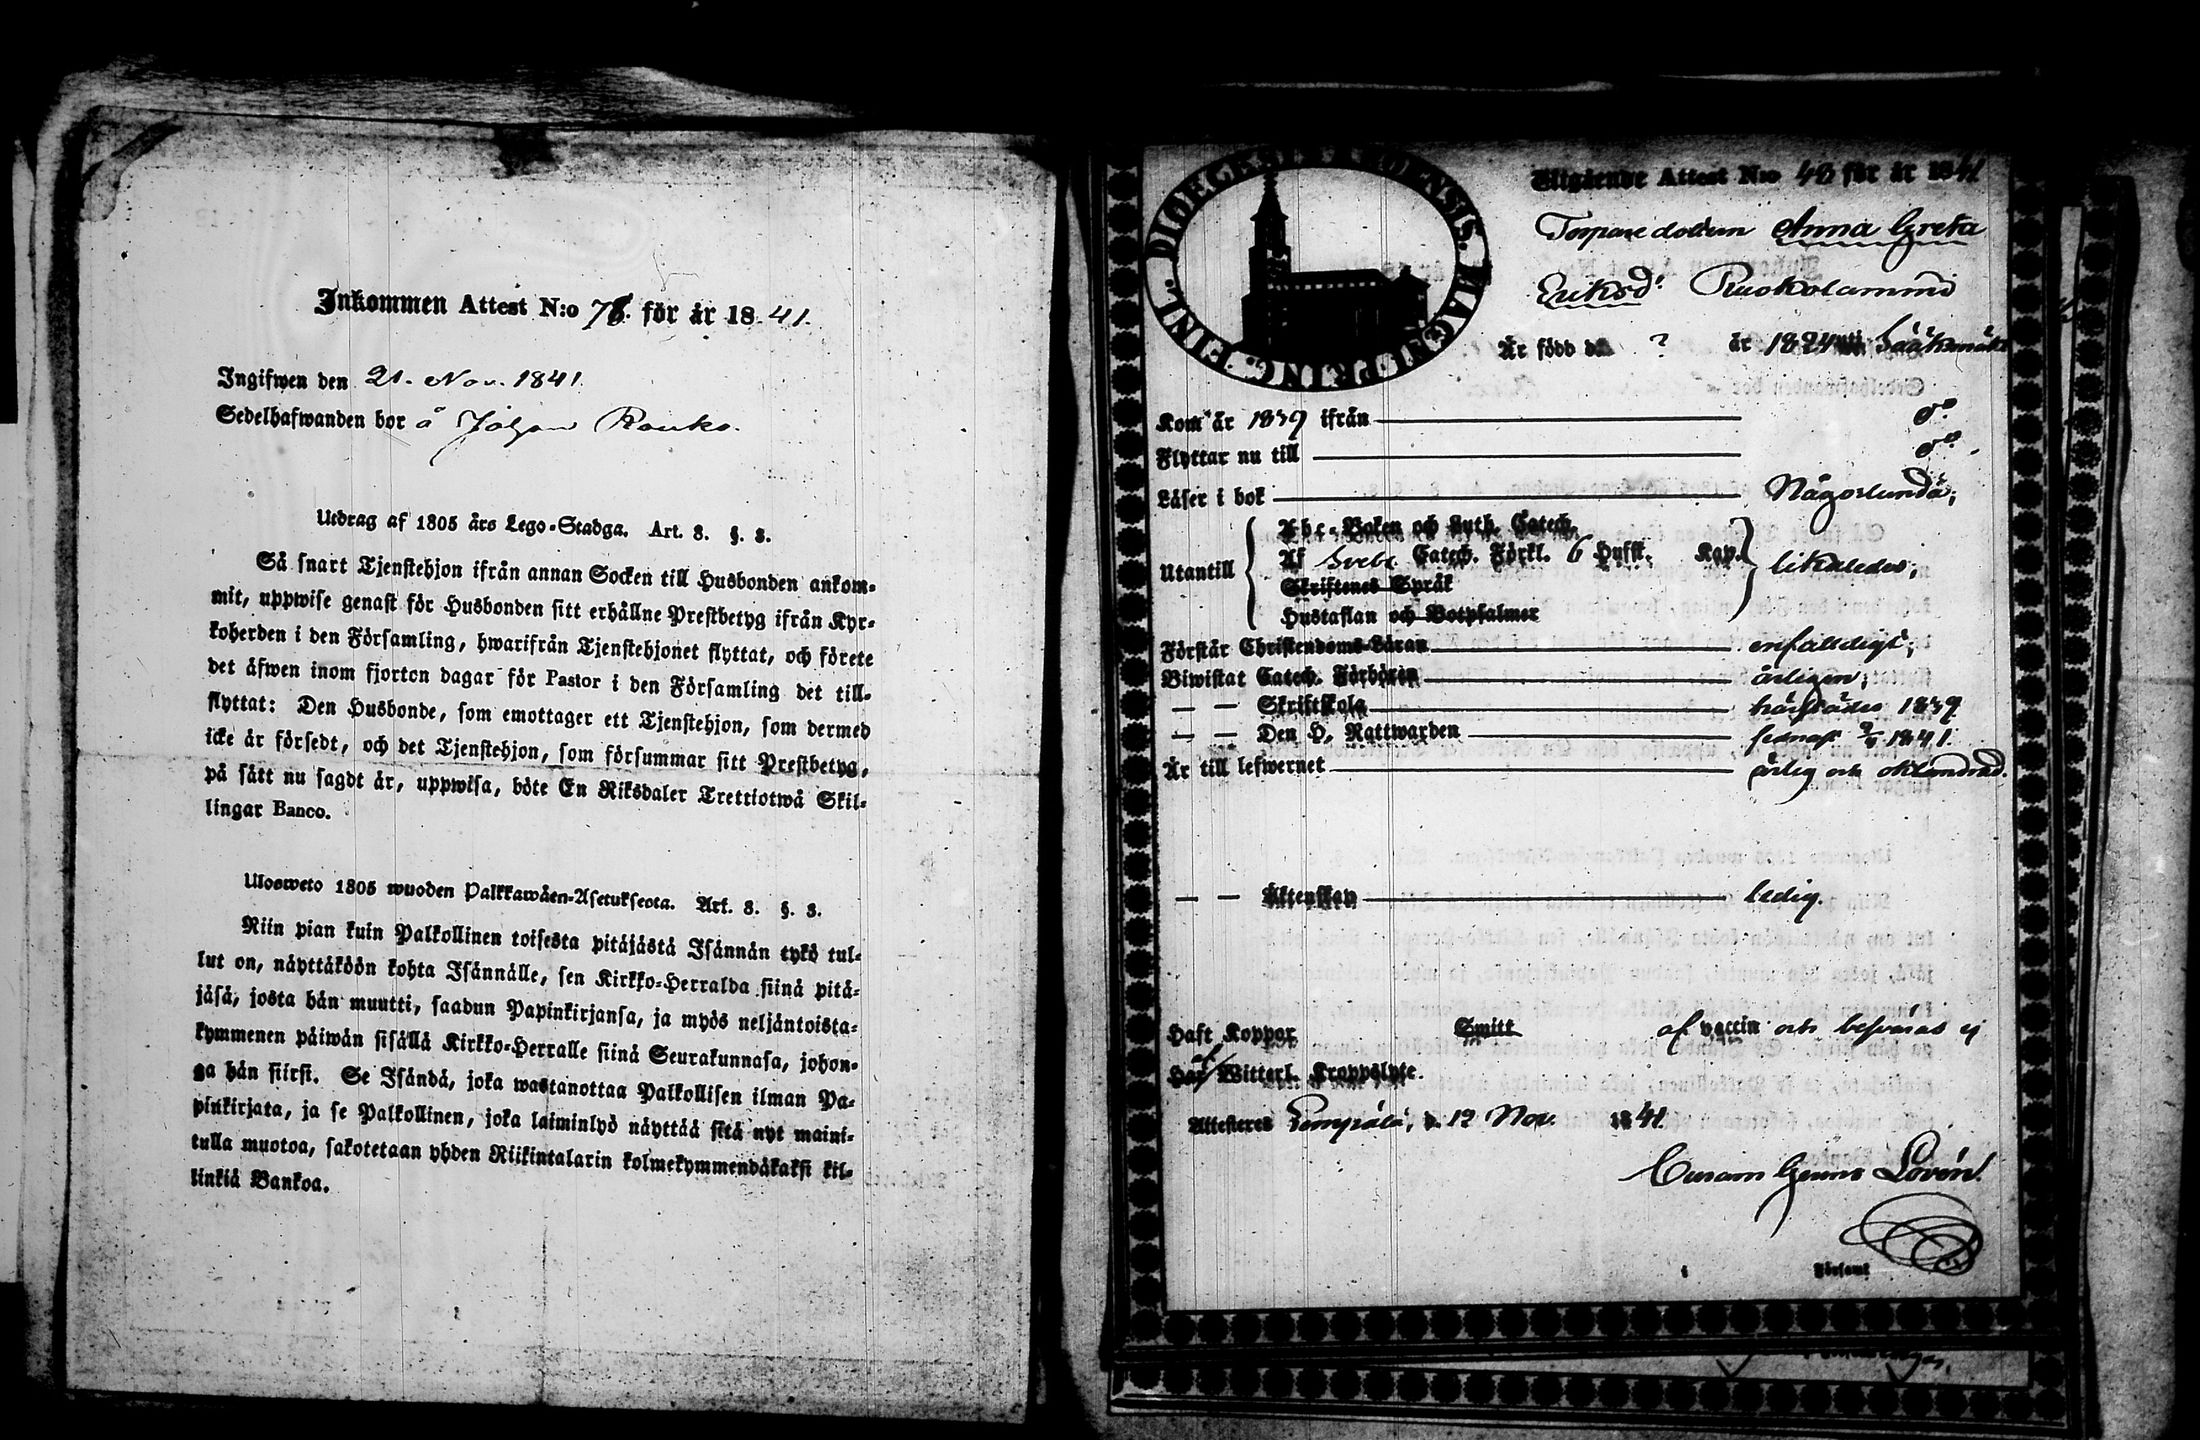 Inkommen Attest N:o 78. för år 1841.
Ingifwen den 21. Nov. 1841.
Sedelhafwanden bor å Rauko.
Utdrag af 1805 års Lego-Stadga. Art. 3. §. 3.
Så snart Tjenstehjon ifrån annan Socken till Husbonden ankom-
mit, uppwise genast för Husbonden sitt erhållne Prestbetyg ifrån Kyr-
koherden i den Församling, hwarifrån Tjenstehjonet flyttat, och förete
det äfwen inom fjorton dagar för Pastor i den Församling det till-
flyttat: Den Husbonde, som emottager ett Tjenstehjon, som dermed
icke är försedt, och det Tjenstehjon, som försummar sitt Prestbetyg,
på sätt nu sagdt är, uppwisa, böte En Riksdaler Trettiotwå Skil-
lingar Banco.
Ulosweto 1805 wuoden Palkkawäen-Asetuksesta. Art. 3. §. 3.
Niin pian kuin Palkollinen toisesta pitäjästä Isännän tykö tul-
lut on, näyttäköön kohta Isännälle, sen Kirkko-Herralda siinä pitä-
jäsä, josta hän muutti, saadun Papinkirjansa, ja myös neljäntoista-
kymmenen päiwän sisällä Kirkko-Herralle siinä Seurakunnasa, johon-
ga hän siirsi. Se Isändä, joka wastanottaa Palkollisen ilman Pa-
pinkirjata, ja se Palkollinen, joka laiminlyö näyttää sitä nyt maini-
tulla muotoa, sakotetaan yhden Riikintalarin kolmekymmendäkaksi kil-
linkiä Bankoa.
DIOECESIS ABOENSIS. MAGN. PRINC. FINL.
Utgående Attest N:o 48 för år 1841
Torpare dottern Anna Greta
Eriksd.r Ruokolammi
Är född d. ? år 1824 uti Sääksmäki
Kom år 1839 ifrån d:o
Flyttar nu till d:o.
Läser i bok Någorlunda;
Utantill Abc-Boken och Luth. Catech.
Af Svebi. Catech. Förkl. 6 Hufst. Kap. likaledes;
Skriftenes Språk
Hustaflan och Botpsalmer
Förstår Christendoms-Läran enfaldigt;
Biwistat Catech. Förhören årligen;
— — Skriftskola härstädes 1839
— — Den H. Nattwarden senast 1841.
Är till lefwernet ärlig och oklandrad.
— — Äktenskap ledig.
Haft Koppor Smitt af vaccin och besväras ej
af Witterl. Kroppslyte.
Attesteres Lempälä, d. 12 Nov. 1841
Curam Gerens Lovén.
Församl